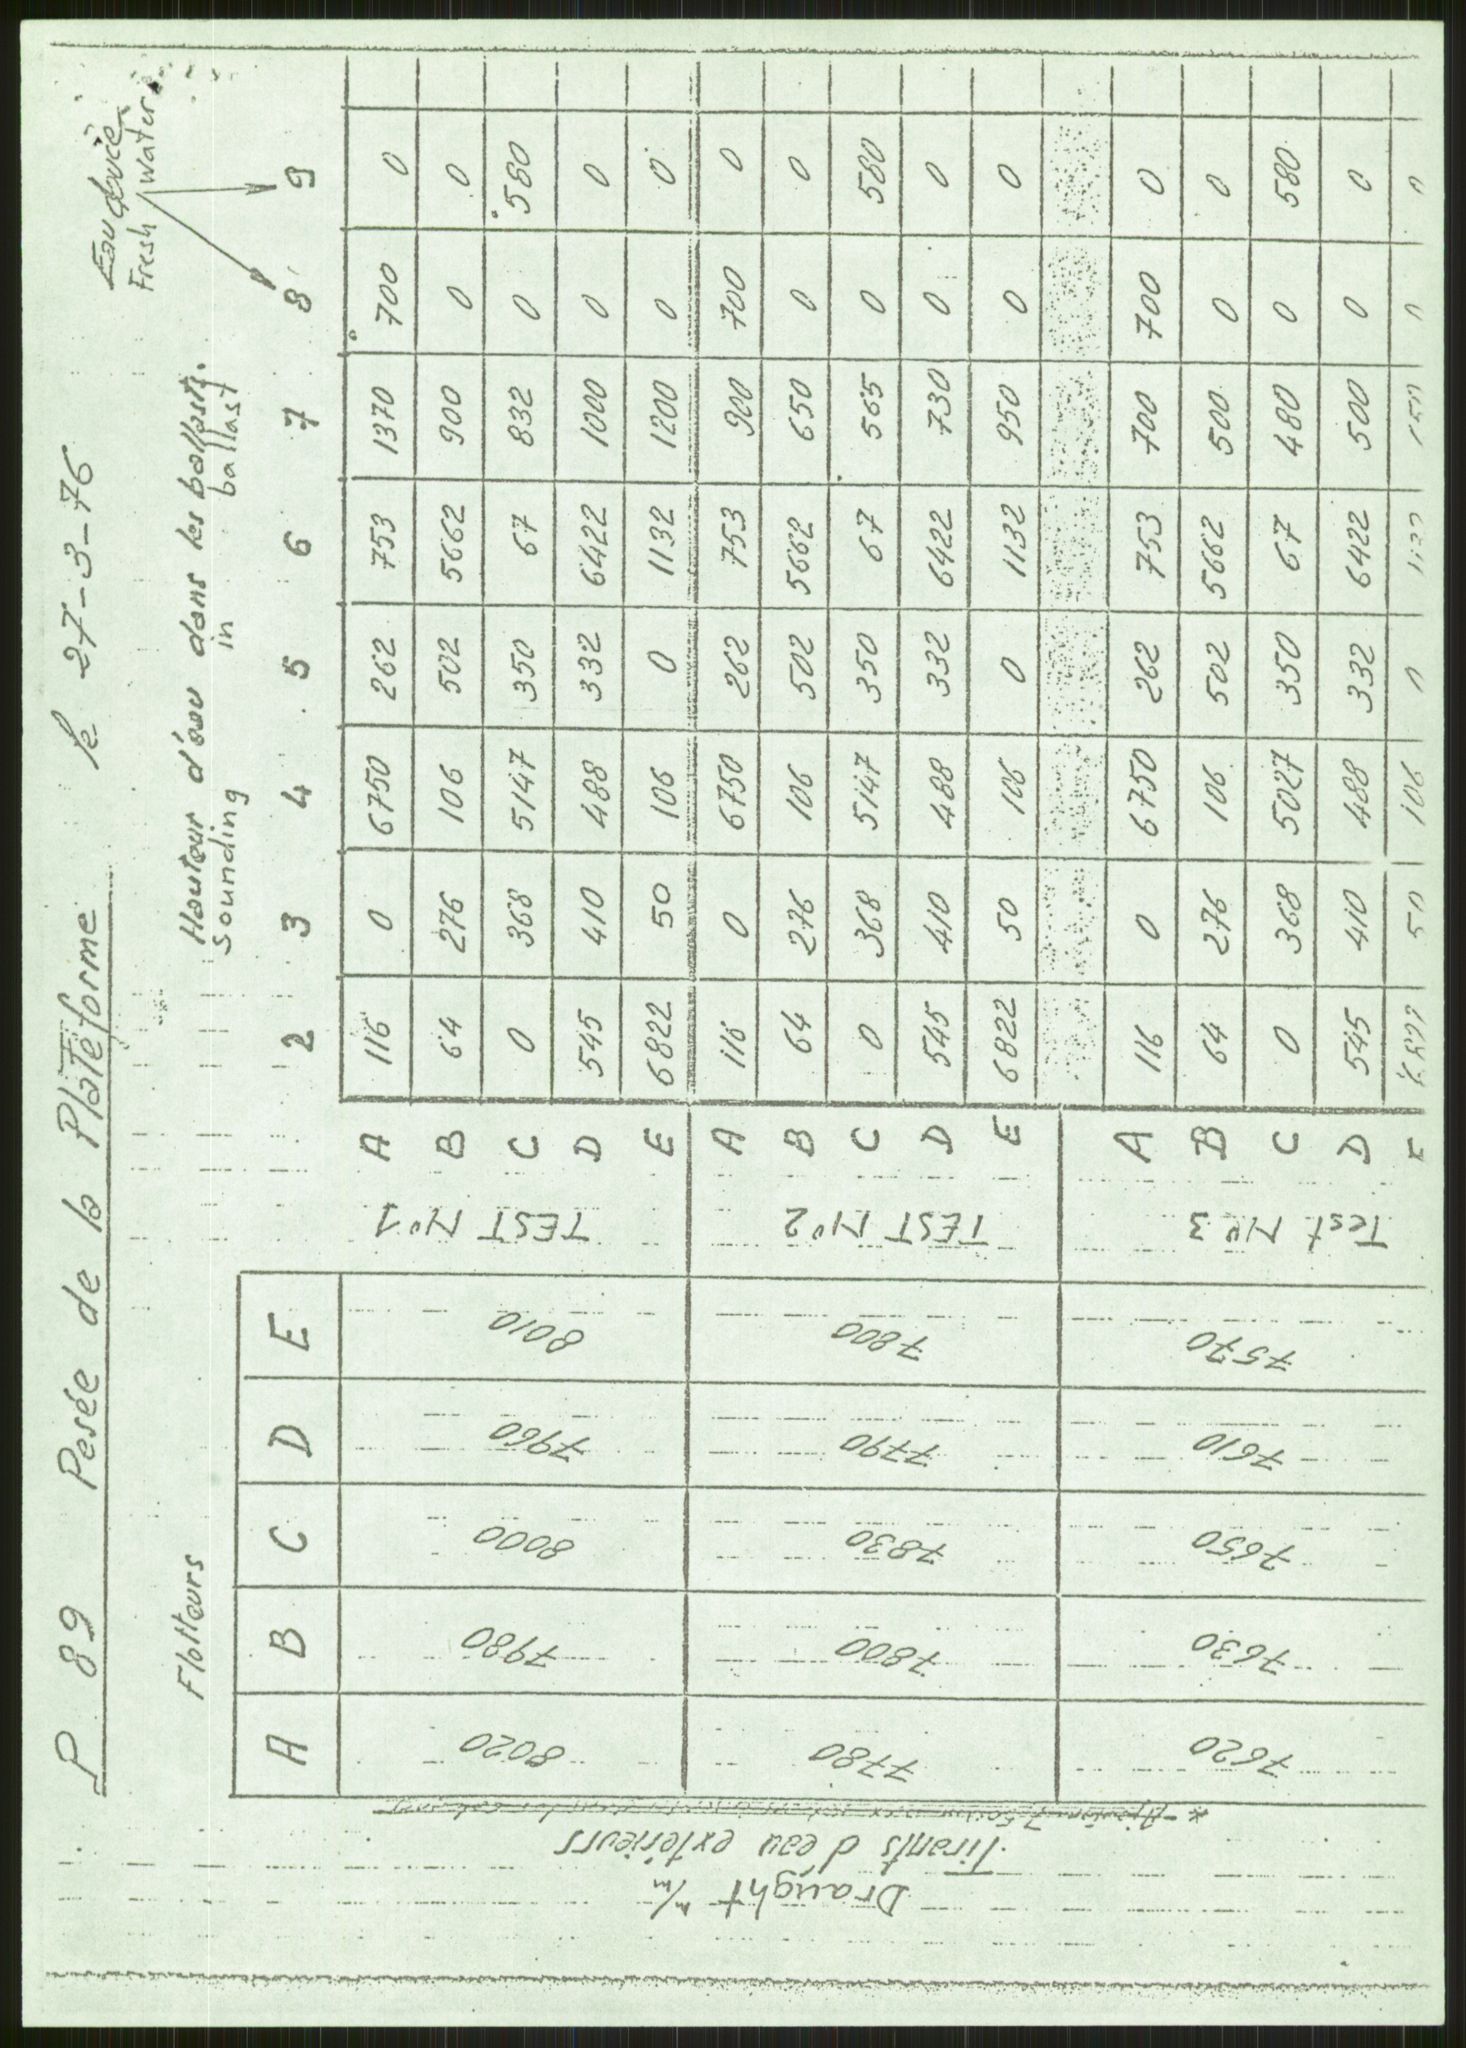 P 89 Pesée de la Plateforme le 27-3-76
Flotteurs
Hauteur d'eau dans les ballasts.
Sounding in ballast
Eau douce
Fresh water
A B C D E
2 3 4 5 6 7 8 9
Draught m/m
Tirants d'eau extérieurs
8020 7980 8000 7960 8010
TEST No 1
A 116 0 6750 262 753 1370 700 0
B 64 276 106 502 5662 900 0 0
C 0 368 5147 350 67 832 0 580
D 545 410 488 332 6422 1000 0 0
E 6822 50 106 0 1132 1200 0 0
7780 7800 7830 7790 7800
TEST No 2
A 116 0 6750 262 753 900 700 0
B 64 276 106 502 5662 650 0 0
C 0 368 5147 350 67 565 0 580
D 545 410 488 332 6422 730 0 0
E 6822 50 106 0 1132 950 0 0
7620 7630 7650 7610 7570
Test No 3
A 116 0 6750 262 753 700 700 0
B 64 276 106 502 5662 500 0 0
C 0 368 5027 350 67 480 0 580
D 545 410 488 332 6422 500 0 0
50 106 0 0 0